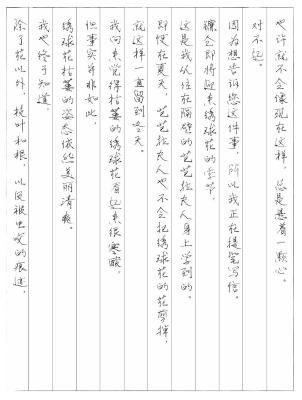 也许就不会像现在这样，总是悬着一颗心。
对不起。
因为想告诉您这件事，所以我正在提笔写信。
镰仓即将迎来绣球花的季节。
这是我从住在隔壁的芭芭拉夫人身上学到的。
即使在夏天，芭芭拉夫人也不会把绣球花的花剪掉，
就这样一直留到冬天。
我向来觉得枯萎的绣球花看起来很寒酸，
但事实并非如此，
绣球花枯萎的姿态依然美丽清爽。
我也终于知道，
除了花以外，枝叶和根，以及被虫咬的痕迹，